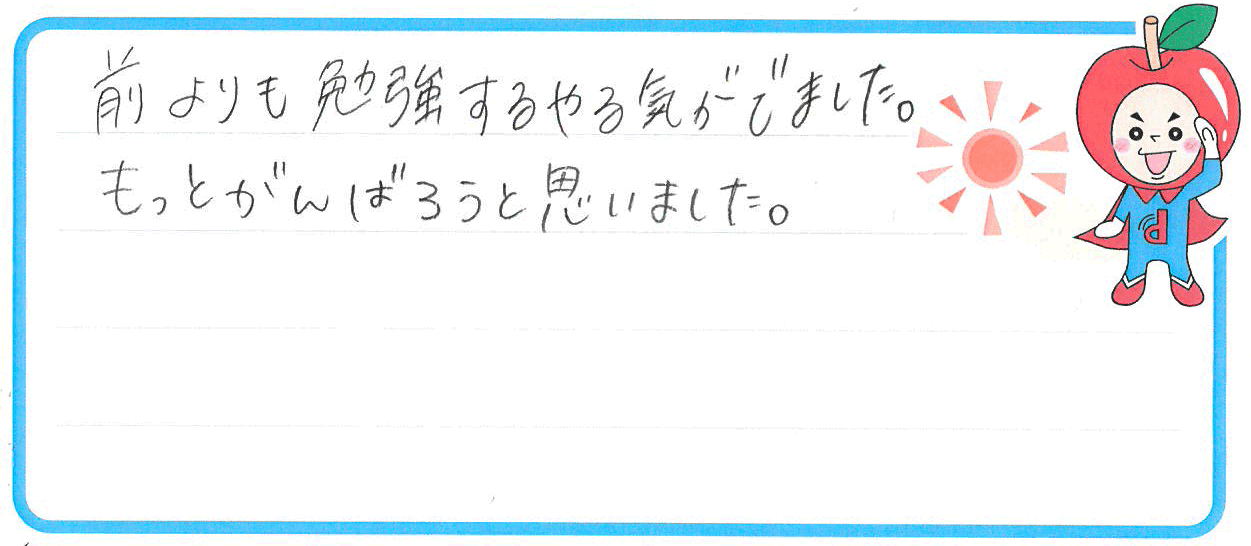 前よりも勉強するやる気がでました。
もっとがんばろうと思いました。